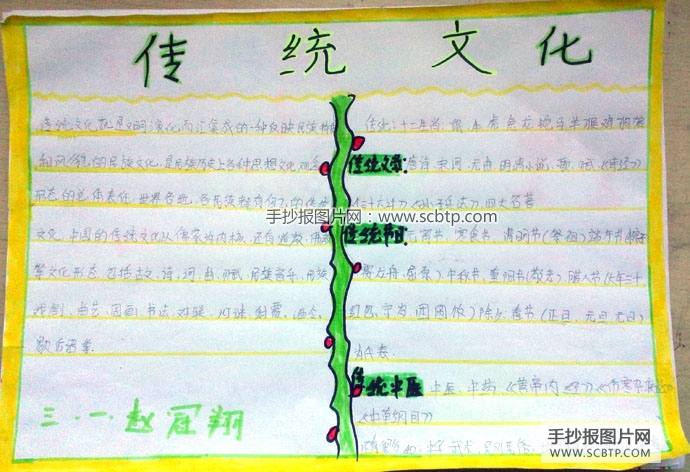 传统文化
传统文化就是文明演化而汇集成的一种反映民族特
和风貌的民族文化,是民族历史上各种思想文化、观念
形态的总体表征。世界各地,各民族都有自己的传统
文化,中国的传统文化以儒家为内核,还有道教、佛教
等文化形态,包括古文、诗、词、曲、赋、民族音乐、民族
戏剧、曲艺、国画、书法、对联、灯谜、射覆、酒令、
歇后语等。
三·一赵冠翔
传统:十二生肖 鼠、牛、虎、兔、龙、蛇、马、羊、猴、鸡、狗、猪
传统文学:唐诗、宋词、元曲、明清小说、歌、赋、《诗经》
三十六计》《孙子兵法》、四大名著
传统节日:元宵节、寒食节、清明节(祭祖)端午节
赛龙舟、屈原)中秋节、重阳节(敬老)腊八节(大年三十
红包、守岁、团圆饭)除夕、春节(正旦、元旦、元日)
传统中医 中医、中药、《黄帝内经》、《伤寒杂病论》
《本草纲目》
手抄报图片网:www.scbtp.com
手抄报图片网
SCBTP.COM